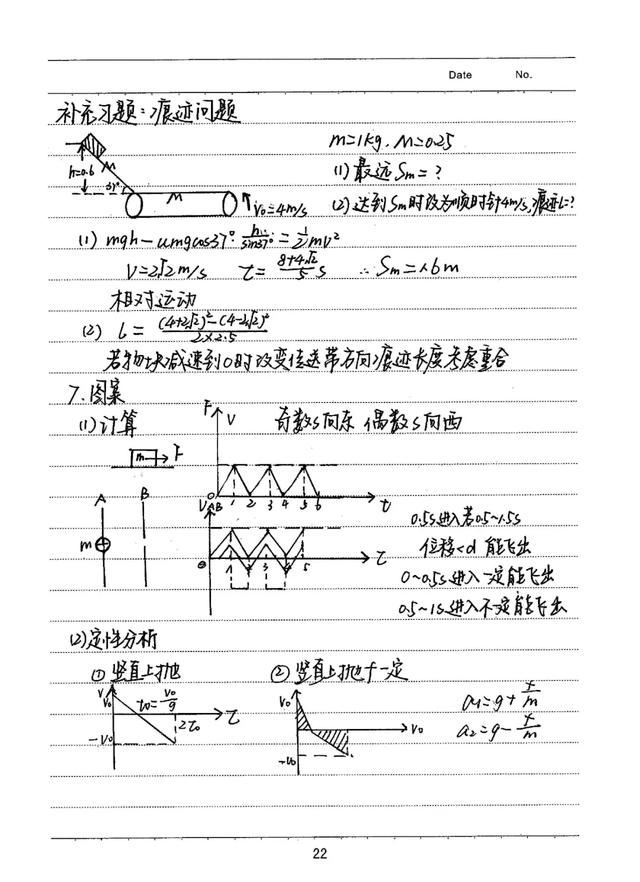 Date No.
补充习题：痕迹问题
m=1kg. M=0.25
h=0.6
37°
M
M
V₀=4m/s
(1) 最远Sm=?
(2) 达到Sm时改为顺时针4m/s,痕迹L=?
(1) mgh-umgcos37°·h/sin37°=1/2mv²
V=2√2m/s t=(8+4√2)/5 s ∴Sm=1.6m
相对运动
(2) L=((4+2√2)²-(4-2√2)²)/(2×2.5)
若物块减速到0时改变传送带方向痕迹长度考虑重合
7.图案
(1)计算
F V 奇数s向东 偶数s向西
m F
0 1 2 3 4 5 6 t
A B
m
VAB
0 1 2 3 4 5 t
0.5s进入若0.5~1.5s
位移<d 能飞出
0~0.5s进入一定能飞出
0.5~1s进入不一定能飞出
(2)定性分析
①竖直上抛 ②竖直上抛f一定
V V₀ t₀=V₀/g 2t₀ t -V₀
V₀ V₀ -V₀
a₁=g+f/m
a₂=g-f/m
22